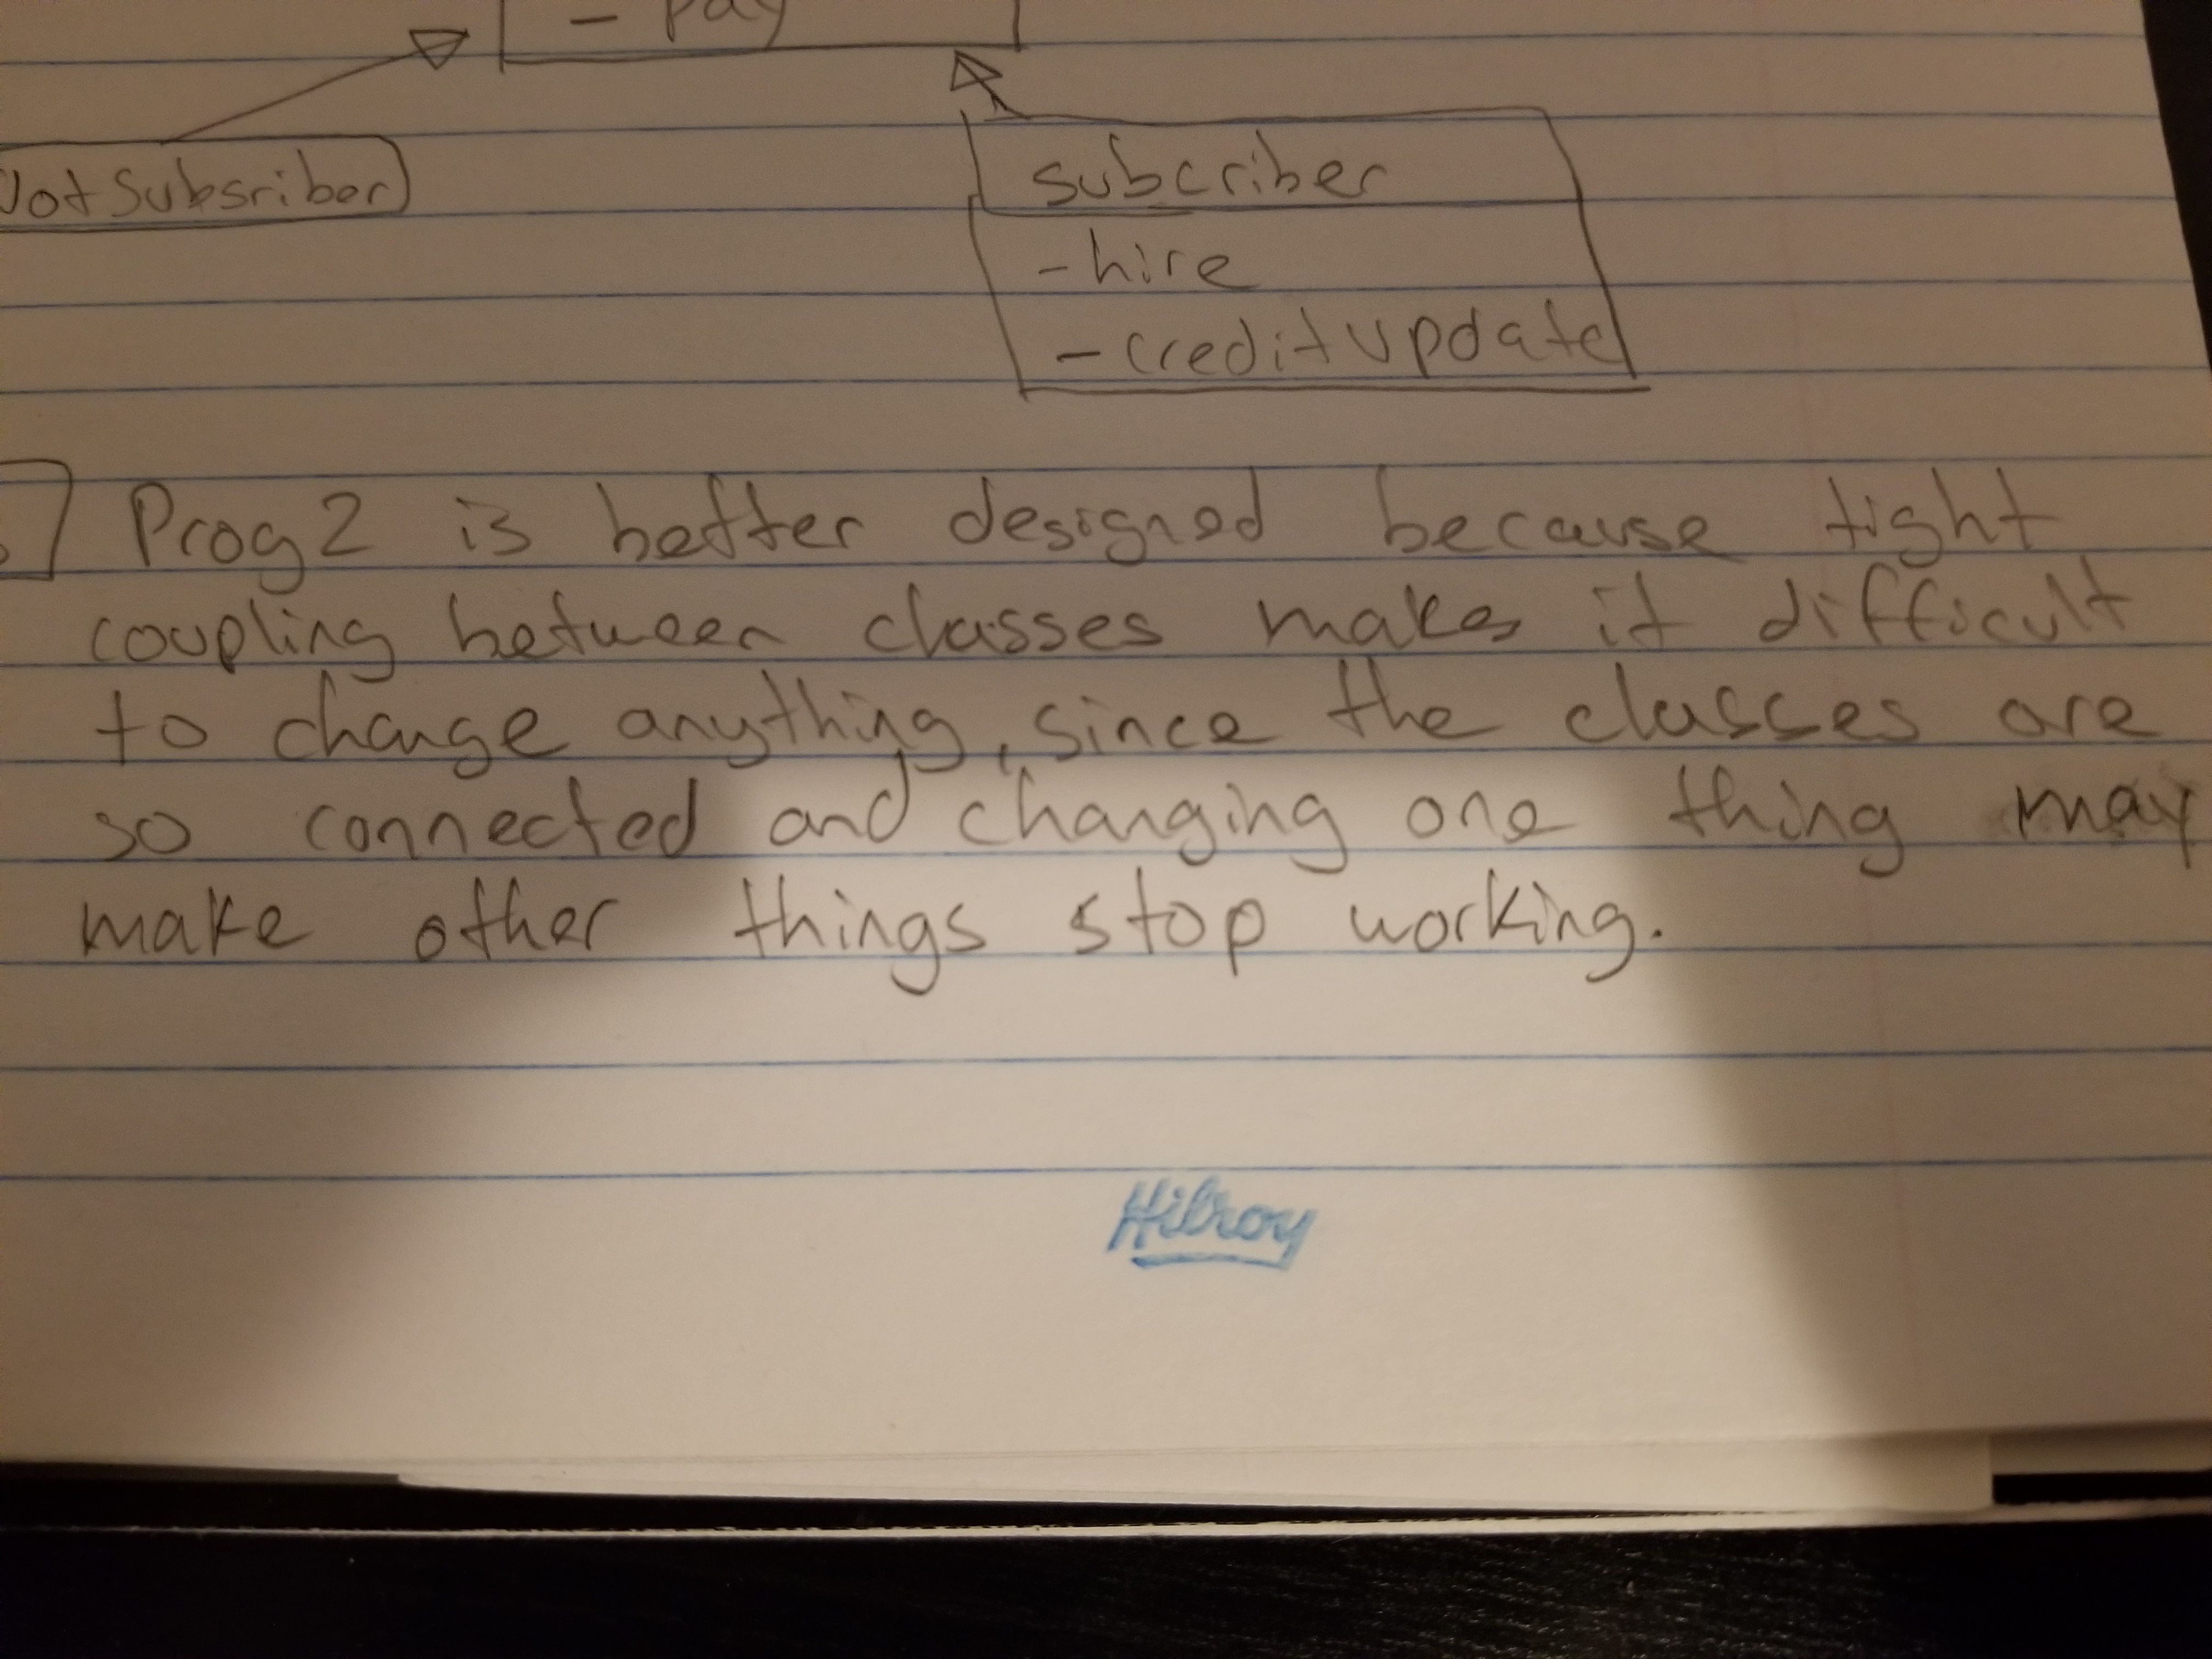 - pay
Not Subsriber
subcriber
- hire
- credit update
Prog 2 is better designed because tight
coupling between classes makes it difficult
to change anything, since the classes are
so connected and changing one thing may
make other things stop working.
Hilroy